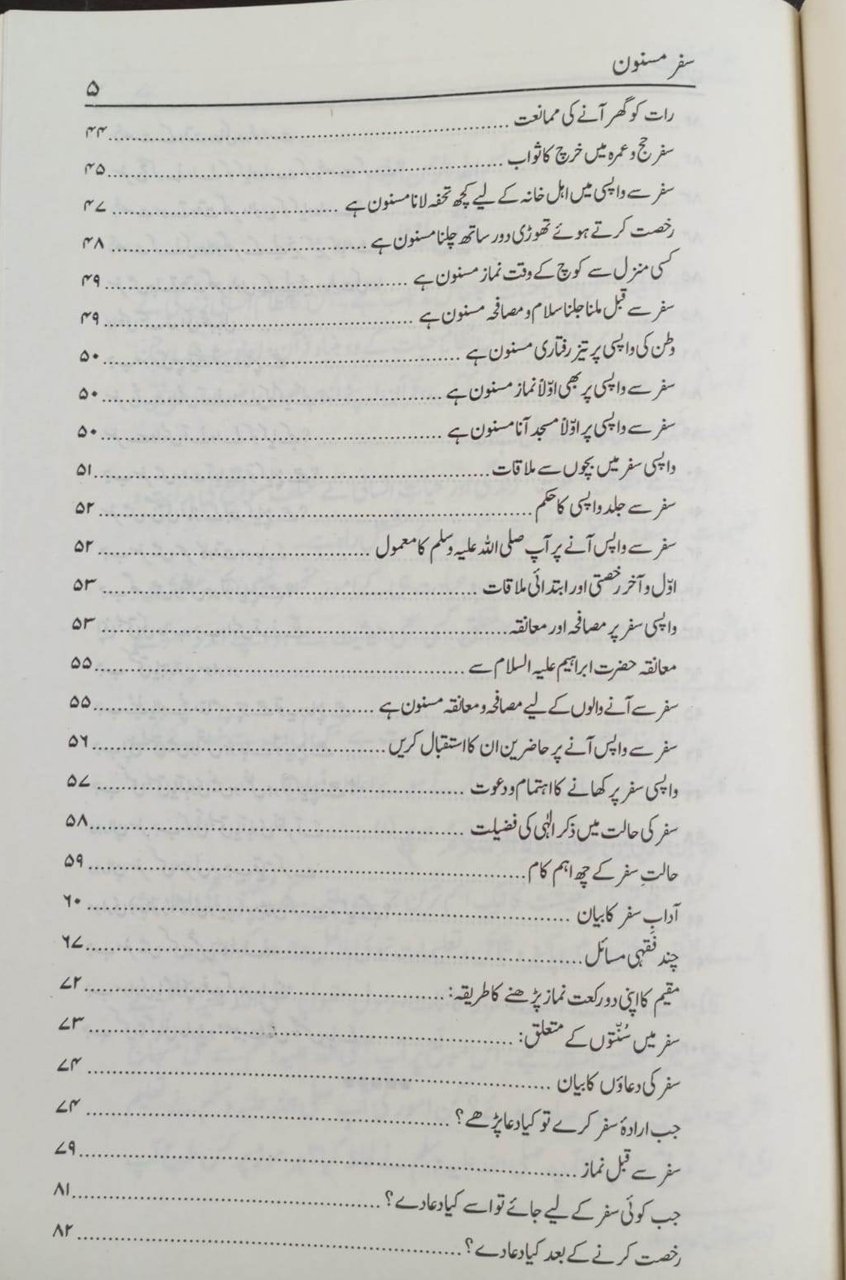 سفر مسنون
۵
رات کو گھر آنے کی ممانعت ................ ۴۴
سفر حج و عمرہ میں خرچ کا ثواب ................ ۴۵
سفر سے واپسی میں اہل خانہ کے لیے کچھ تحفہ لانا مسنون ہے ................ ۴۷
رخصت کرتے ہوئے تھوڑی دور ساتھ چلنا مسنون ہے ................ ۴۸
کسی منزل سے کوچ کے وقت نماز مسنون ہے ................ ۴۹
سفر سے قبل ملنا جلنا سلام و مصافحہ مسنون ہے ................ ۴۹
وطن کی واپسی پر تیز رفتاری مسنون ہے ................ ۵۰
سفر سے واپسی پر بھی اوّلاً نماز مسنون ہے ................ ۵۰
سفر سے واپسی پر اوّلاً مسجد آنا مسنون ہے ................ ۵۰
واپسی سفر میں بچوں سے ملاقات ................ ۵۱
سفر سے جلد واپسی کا حکم ................ ۵۲
سفر سے واپس آنے پر آپ صلی اللہ علیہ وسلم کا معمول ................ ۵۲
اوّل و آخر رخصتی اور ابتدائی ملاقات ................ ۵۳
واپسی سفر پر مصافحہ اور معانقہ ................ ۵۳
معانقہ حضرت ابراہیم علیہ السلام سے ................ ۵۵
سفر سے آنے والوں کے لیے مصافحہ و معانقہ مسنون ہے ................ ۵۵
سفر سے واپس آنے پر حاضرین ان کا استقبال کریں ................ ۵۶
واپسی سفر پر کھانے کا اہتمام و دعوت ................ ۵۷
سفر کی حالت میں ذکر الٰہی کی فضیلت ................ ۵۸
حالتِ سفر کے چھ اہم کام ................ ۵۹
آدابِ سفر کا بیان ................ ۶۰
چند فقہی مسائل ................ ۶۷
مقیم کا اپنی دو رکعت نماز پڑھنے کا طریقہ: ................ ۷۲
سفر میں سُنّتوں کے متعلق: ................ ۷۳
سفر کی دعاؤں کا بیان ................ ۷۴
جب ارادۂ سفر کرے تو کیا دعا پڑھے؟ ................ ۷۴
سفر سے قبل نماز ................ ۷۹
جب کوئی سفر کے لیے جائے تو اسے کیا دعا دے؟ ................ ۸۱
رخصت کرنے کے بعد کیا دعا دے؟ ................ ۸۲